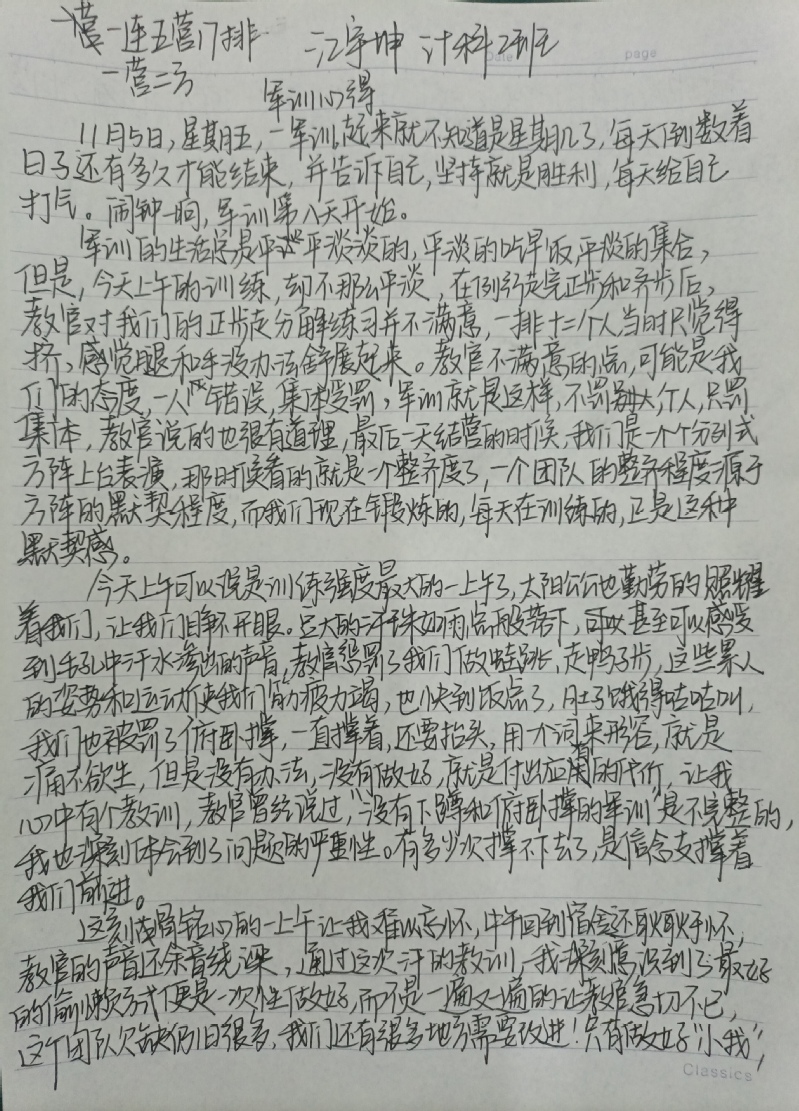 一营一连五营17排 江宇坤 计科2班
Date page
一营二号
军训心得
11月5日,星期五,一军训起来就不知道是星期几了,每天倒数着
日子还有多久才能结束,并告诉自己,坚持就是胜利,每天给自己
打气。闹钟一响,军训第八天开始。
军训的生活总是平平淡淡的,平淡的吃早饭,平淡的集合,
但是,今天上午的训练,却不那么平淡,在例行走完正步和齐步后,
教官对我们的正步走分解练习并不满意,一排十二个人当时只觉得
挤,感觉腿和手没办法舒展起来。教官不满意的点,可能是我
们的态度,一人错误,集体受罚,军训就是这样,不罚个人,只罚
集体,教官说的也很有道理,最后一天结营的时候,我们是一个个分列式
方阵上台表演,那时候看的就是一个整齐度了,一个团队的整齐程度源于
方阵的默契程度,而我们现在锻炼的,每天在训练的,正是这种
默契感。
今天上午可以说是训练强度最大的一上午了,太阳公公也勤劳的照耀
着我们,让我们睁不开眼。豆大的汗珠如雨点般落下,甚至可以感受
到毛孔中汗水渗出的声音,教官惩罚了我们做蛙跳,走鸭子步,这些累人
的姿势和运动使我们筋疲力竭,也快到饭点了,肚子饿得咕咕叫,
我们也被罚了俯卧撑,一直撑着,还要抬头,用个词来形容,就是
痛不欲生,但是没有办法,没有做好,就是付出应有的代价,让我
心中有个教训,教官曾经说过,"没有下蹲和俯卧撑的军训"是不完整的,
我也深刻体会到了问题的严重性。有多少次撑不下去了,是信念支撑着
我们前进。
这刻骨铭心的一上午让我难以忘怀,中午回到宿舍还耿耿于怀,
教官的声音还余音绕梁,通过这次汗的教训,我深刻意识到了最好
的偷懒方式便是一次性做好,而不是一遍又一遍的让教官急切不已,
这个团队欠缺仍旧很多,我们还有很多地方需要改进!只有做好"小我",
Classics